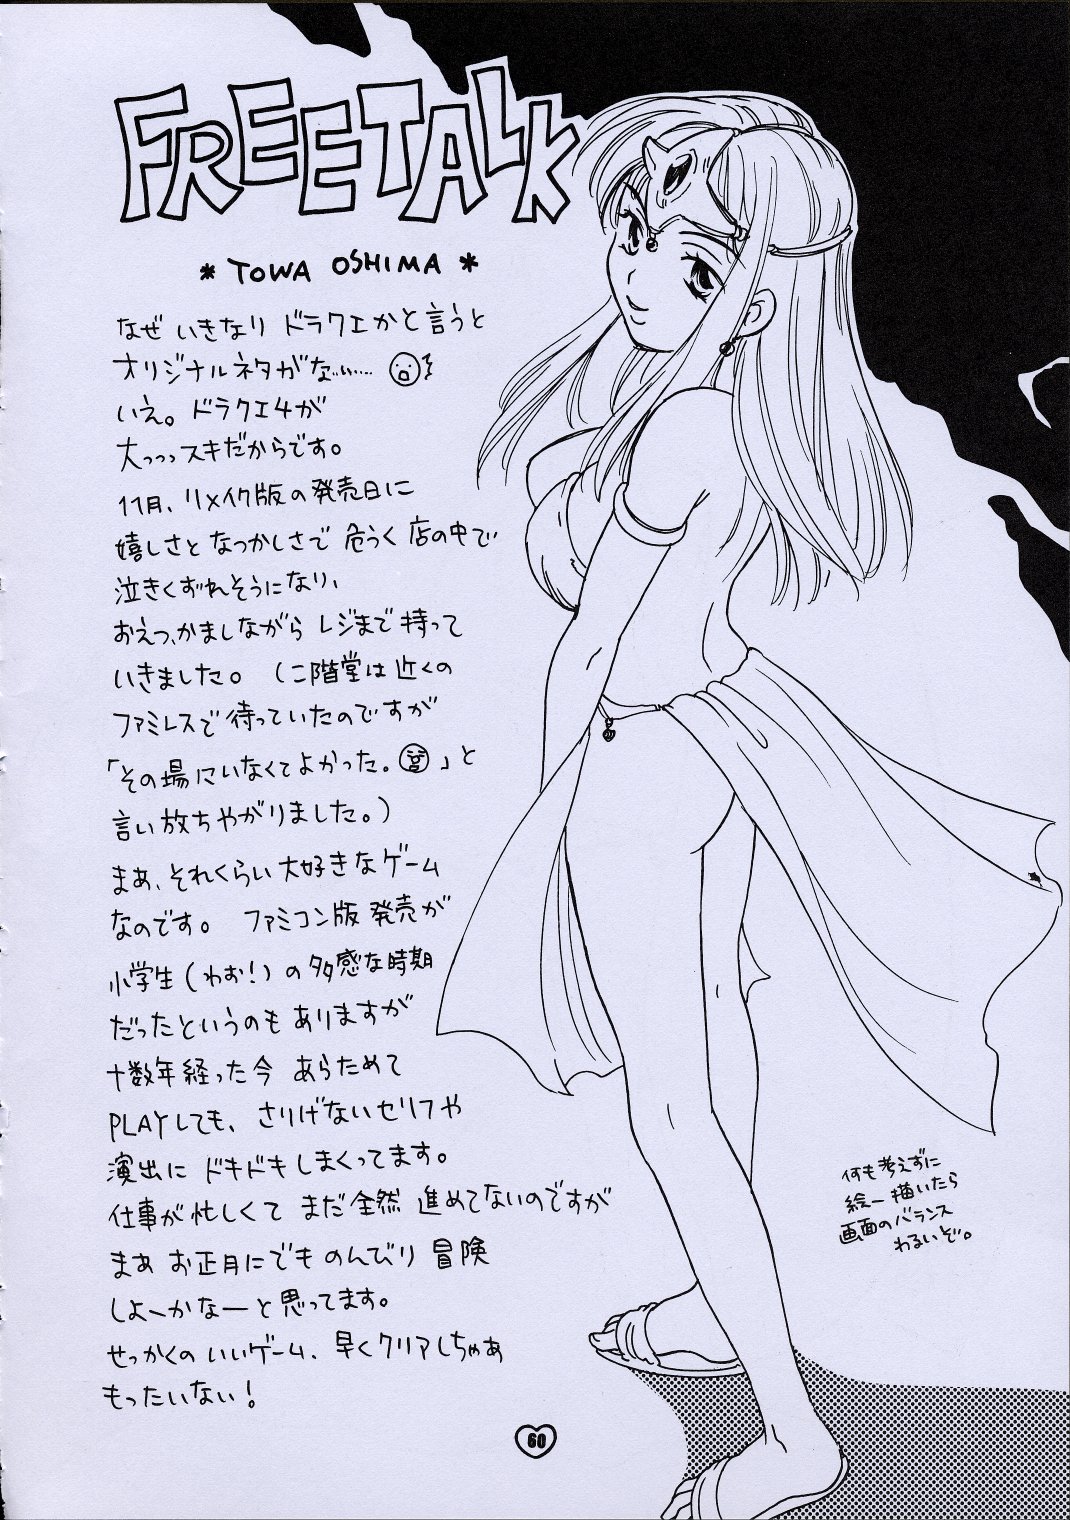 FREETALK
* TOWA OSHIMA *
なぜ いきなり ドラクエかと言うと
オリジナルネタがなぃぃ……
いえ。ドラクエ4が
大っっっスキだからです。
11月、リメイク版の発売日に
嬉しさと なつかしさで 危うく 店の中で
泣きくずれそうになり、
おえつ、かましながら レジまで 持って
いきました。 (二階堂は近くの
ファミレスで 待っていたのですが
「その場にいなくてよかった。」と
言い放ちやがりました。)
まぁ、それくらい大好きなゲーム
なのです。 ファミコン版 発売が
小学生(わお!)の多感な時期
だったというのも ありますが
十数年経った今 あらためて
PLAYしても、さりげないセリフや
演出に ドキドキしまくってます。
仕事が忙しくて まだ全然 進めてないのですが
まぁ お正月にでも のんびり 冒険
しよーかなーと思ってます。
せっかくの いいゲーム、早くクリアしちゃぁ
もったいない!
何も考えずに
絵ー描いたら
画面のバランス
わるいぞ。
60